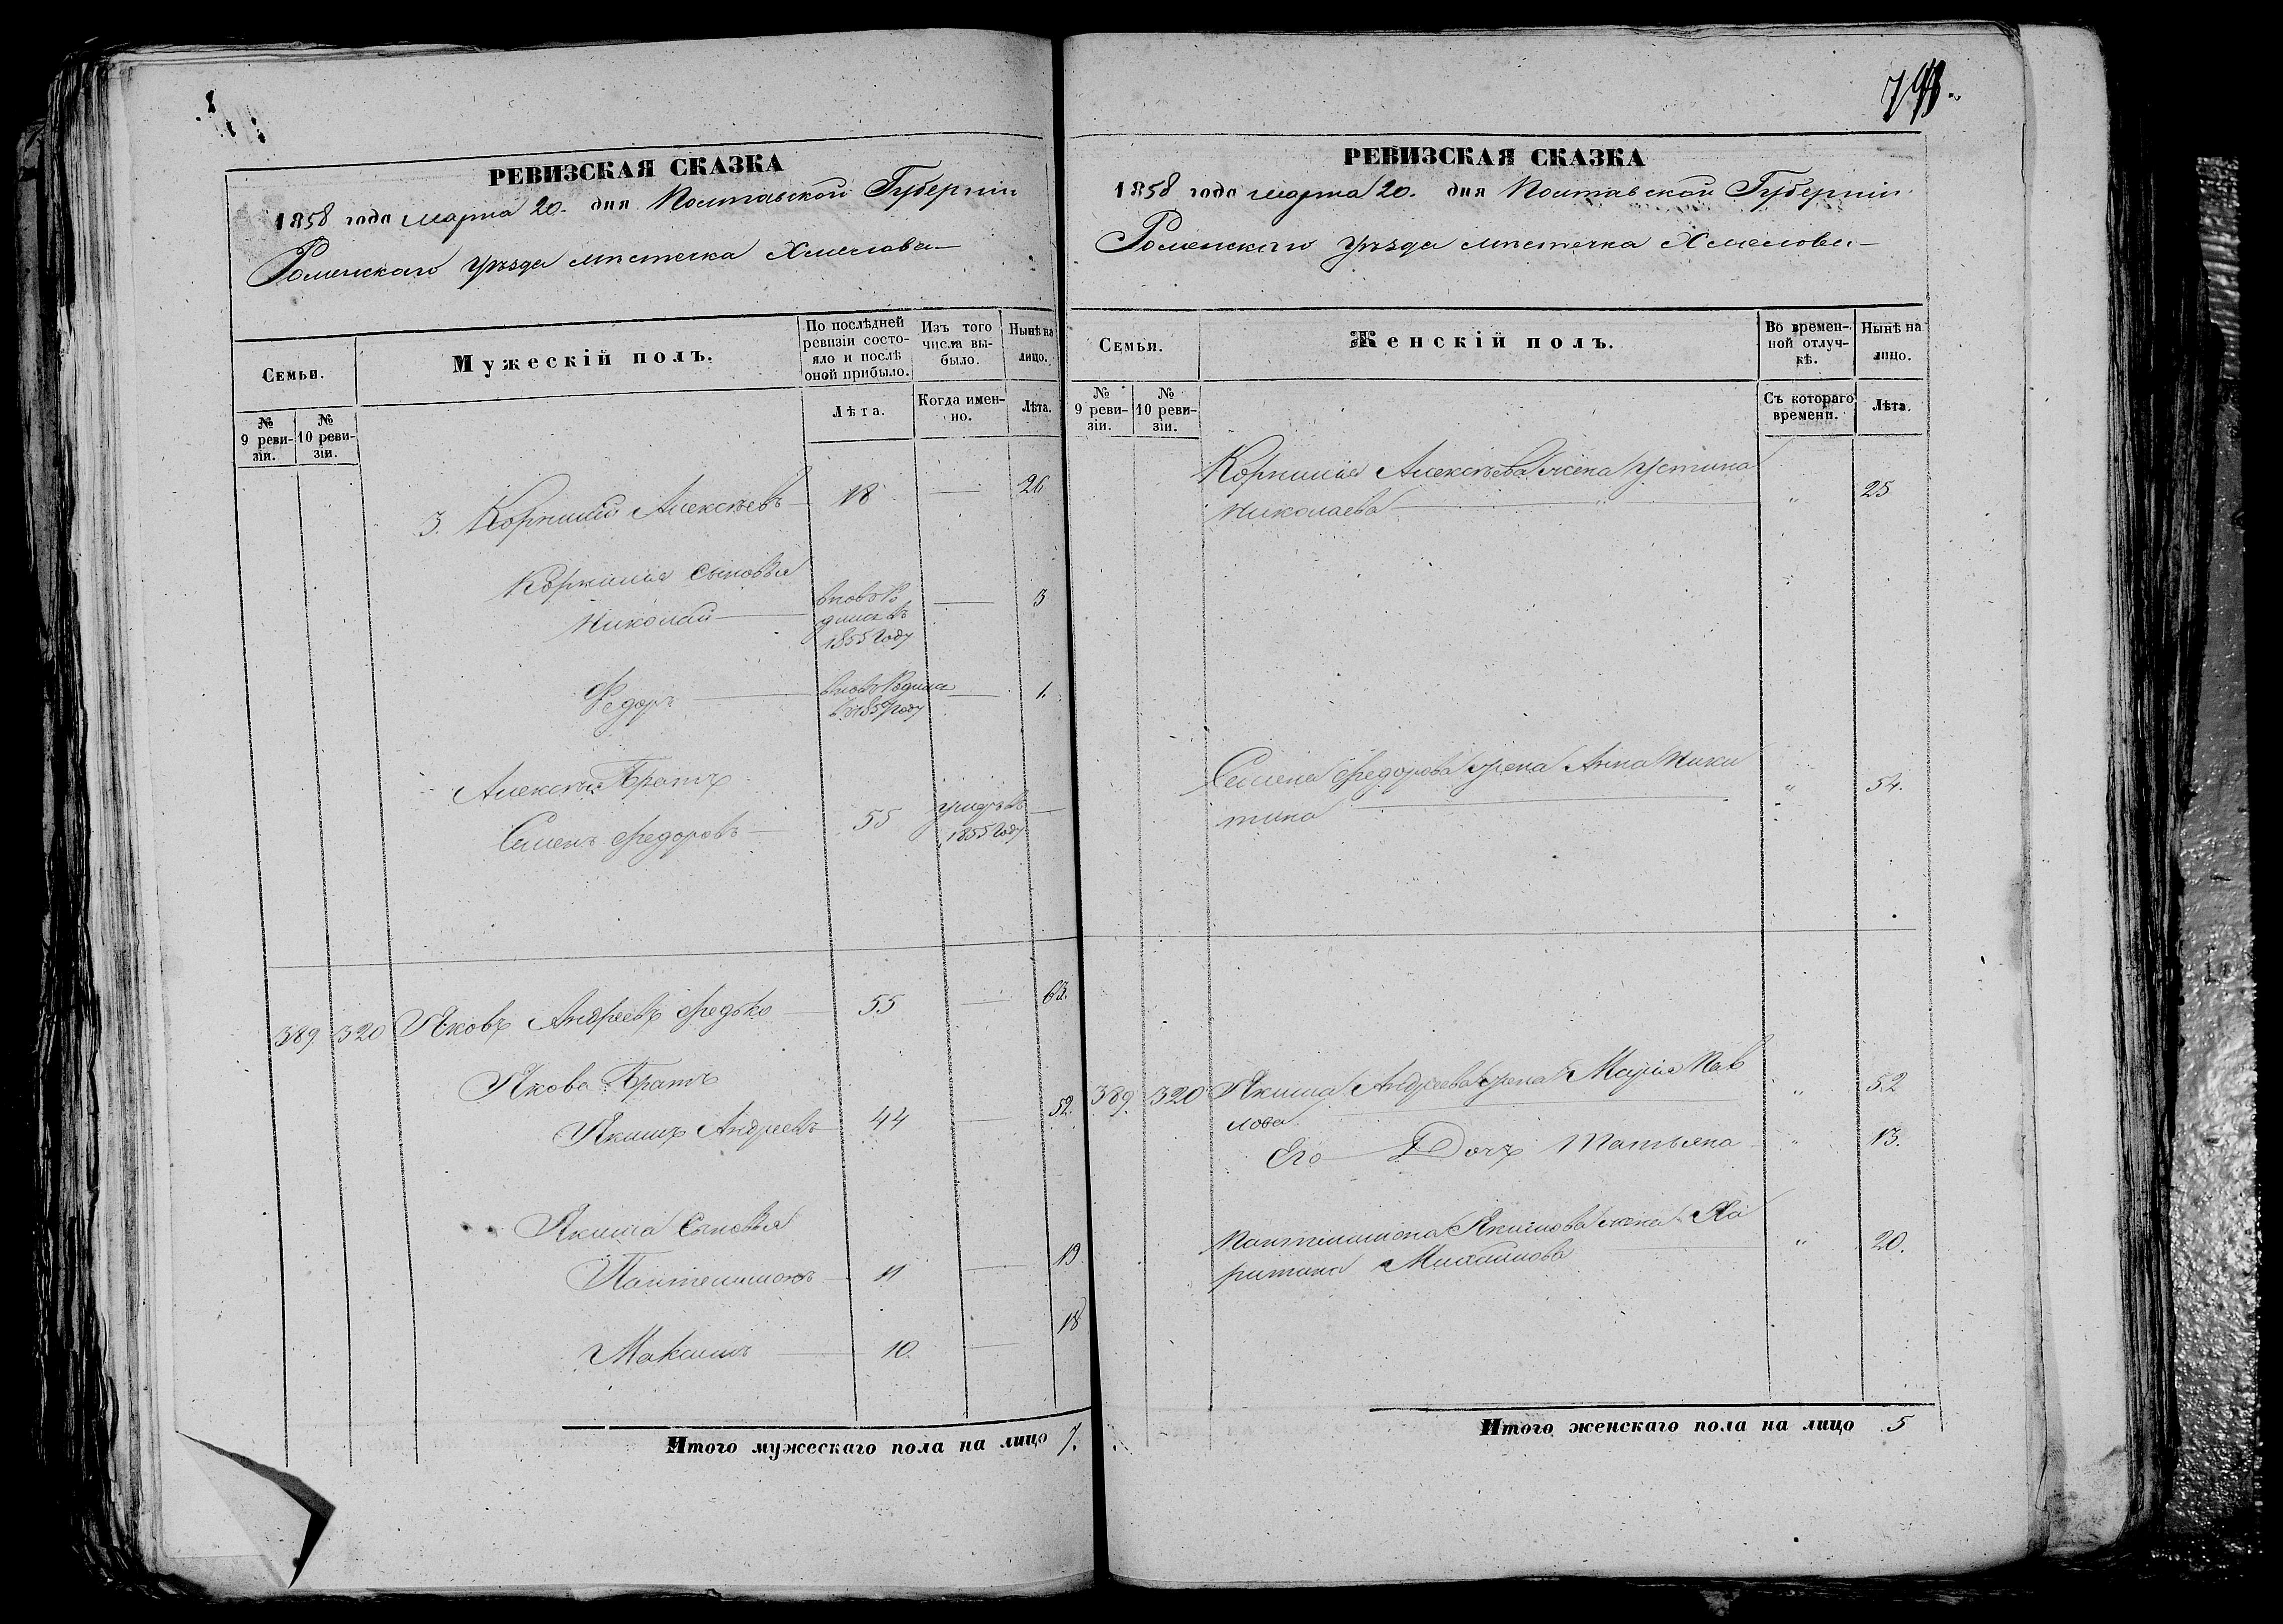 РЕВИЗСКАЯ СКАЗКА
1858 года марта 20. дня Полтавской Губерніи
Роменскаго Уѣзда мѣстечка Хмелова
Семьи.
Мужескій полъ.
По послѣдней ревизіи состо-
яло и послѣ
оной прибыло.
Изъ того
числа вы-
было.
Нынѣ на
лицо.
№
9 реви-
зіи.
№
10 реви-
зіи.
Лѣта.
Когда имен-
но.
Лѣта.
3. Корнилій Алексѣевъ 18 — 26
Корнилія сыновья
Николай вновь Ро — 3
дился въ
1855 Году
Федоръ вновь Родился — 1.
въ 1857 Году
Алексѣя Братъ
Семенъ Федоровъ 55 умеръ въ —
1855 Году
389 320 Яковъ Андреевъ Федько 55 — 63.
Якова Братъ
Якимъ Андреевъ 44 — 52.
Якима Сыновья
Пантелимонъ 11 — 19
Максимъ 10. — 18
Итого мужескаго пола на лицо 7.
РЕВИЗСКАЯ СКАЗКА
1858 года марта 20. дня Полтавской Губерніи
Роменскаго Уѣзда мѣстечка Хмелова
Семьи.
Женскій полъ.
Во времен-
ной отлуч-
кѣ.
Нынѣ на
лицо.
№
9 реви-
зіи.
№
10 реви-
зіи.
Съ котораго
времени.
Лѣта.
Корнилія Алексѣева жена Устина
Николаева " 25
Семена Федорова жена Анна Ники
тина " 54.
389. 320 Якима Андреева жена Марія Пав " 52
лова
Его Дочь Татьяна " 13.
Пантелимона Якимова жена Ха
ритина Михаилова " 20.
Итого женскаго пола на лицо 5